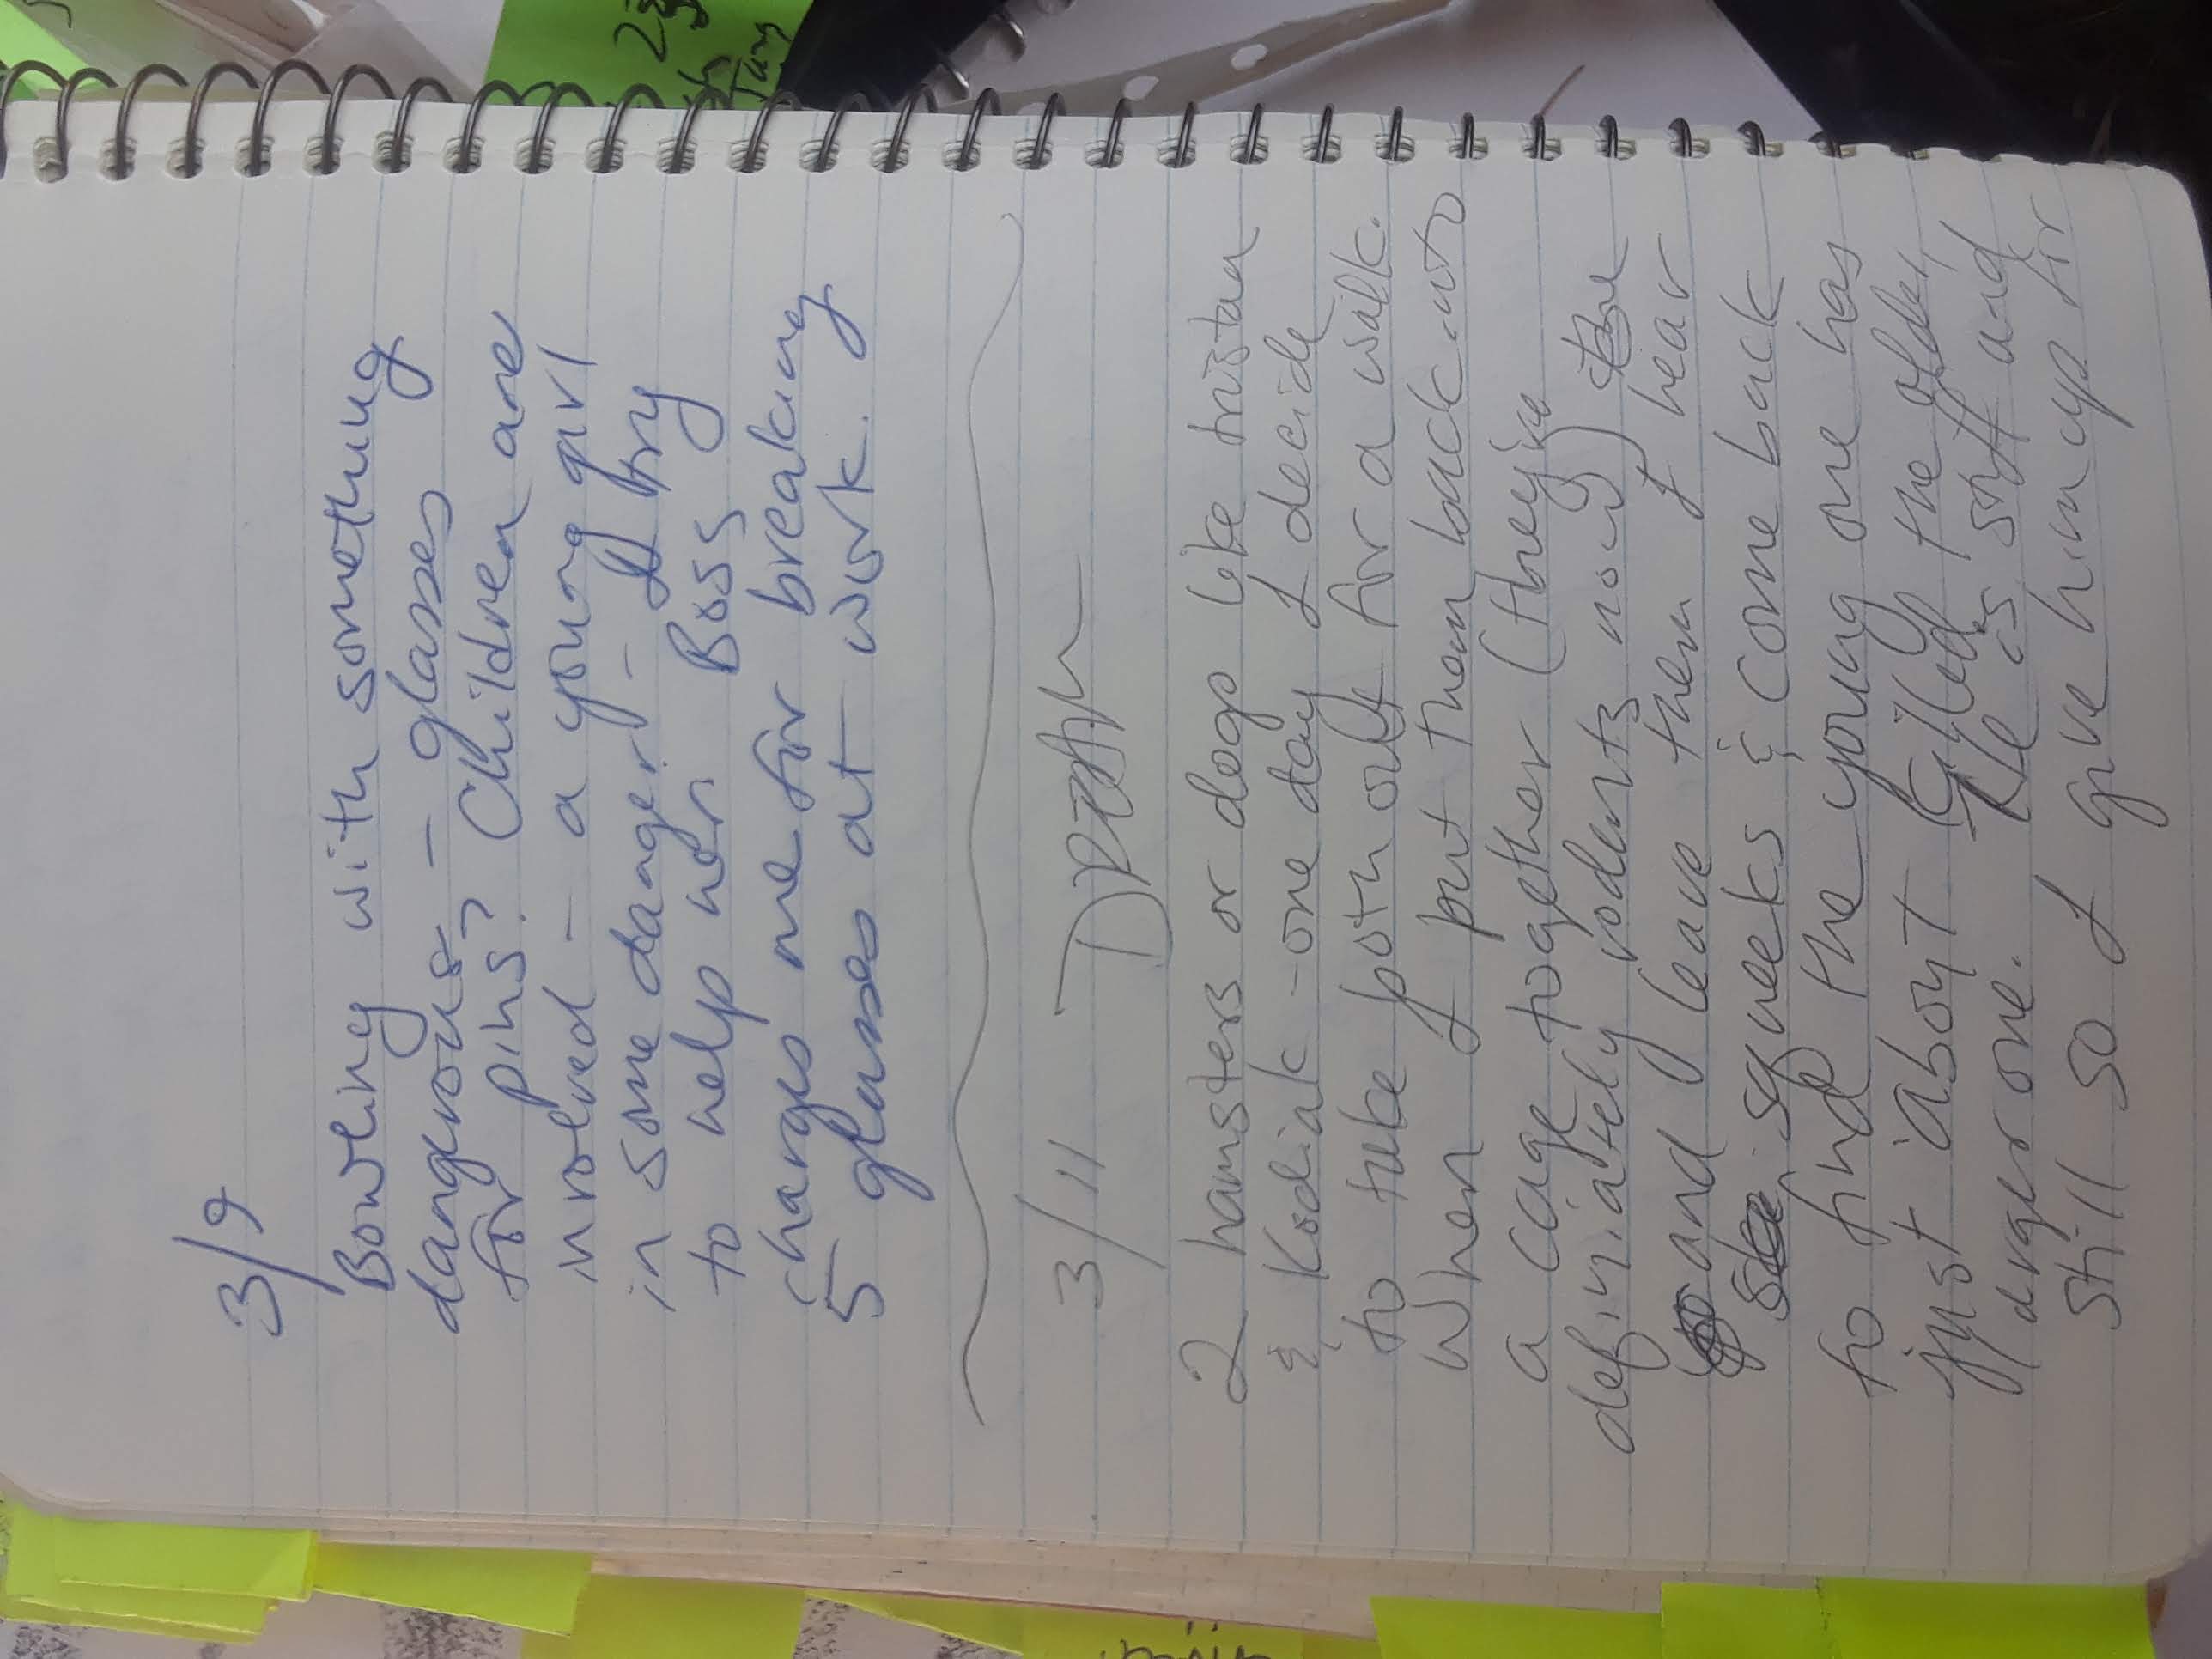 3/9
Bowling with something
dangerous – glasses
for pins? Children are
involved – a young girl
in some danger – I try
to help her. Boss
charges me for breaking
5 glasses at work.
3/11
2 hamsters or dogs like tristan
& Kodiak – one day I decide
to take both out for a walk.
When I put them back into
a cage together (they're
definiately rodents now)
and leave them I hear
squeeks & come back
to find the young one has
just about killed the older,
larger one. He is stiff and
still so I give him up for